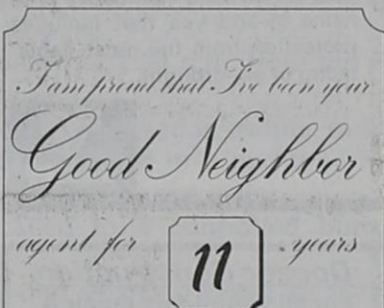 I am proud that I've been your
Good Neighbor
agent for 11 years